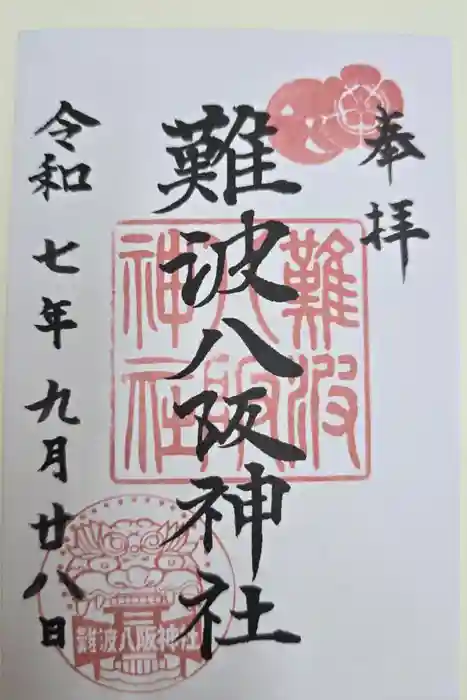 奉拝
難波八阪神社
令和七年九月廿八日
難波八阪神社
難波八阪神社